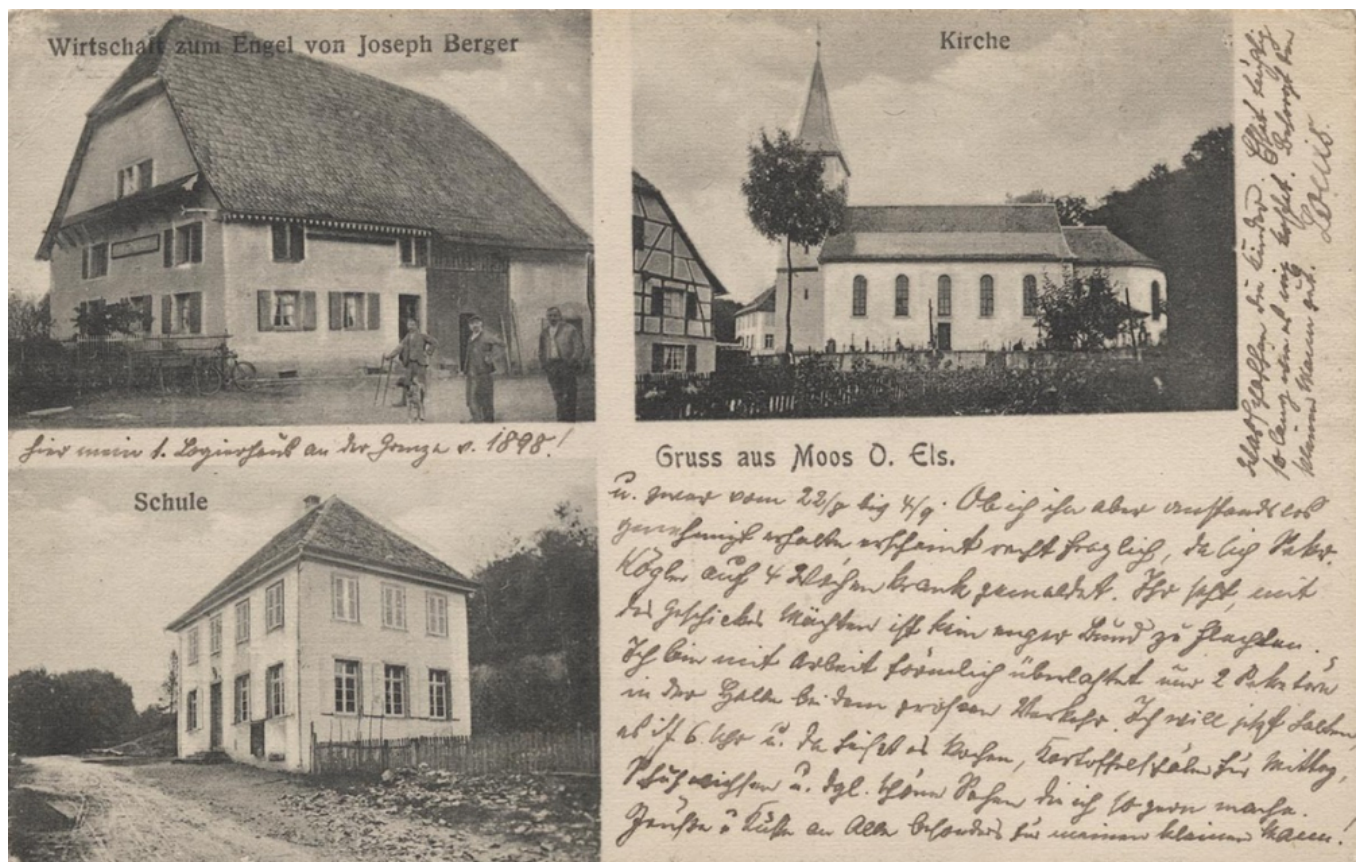 Wirtschaft zum Engel von Joseph Berger
Kirche
hier mein 1. Logierhaus an der Grenze v. 1898!
Gruss aus Moos O. Els.
Schule
u. zwar vom 22/8 bis 4/9. Ob ich ihn aber anstandslos
genehmigt erhalte erscheint recht fraglich, da sich Sekr.
Kögler auf 4 Wochen krank gemeldet. Ihr seht, mit
des Geschickes Mächten ist kein enger Bund zu flechten.
Ich bin mit Arbeit förmlich überlastet nur 2
in der Halle bei dem großen Verkehr. Ich will jetzt
es ist 6 Uhr u. da heißt es kochen, Kartoffelschälen für Mittag,
Schuhwichsen u. dgl. schöne Sachen die ich so gern mache.
Grüße u Küsse an Alle besonders für meinen kleinen Mann!
die Kinder.
so lang
kleinen Mann gut. Louis.